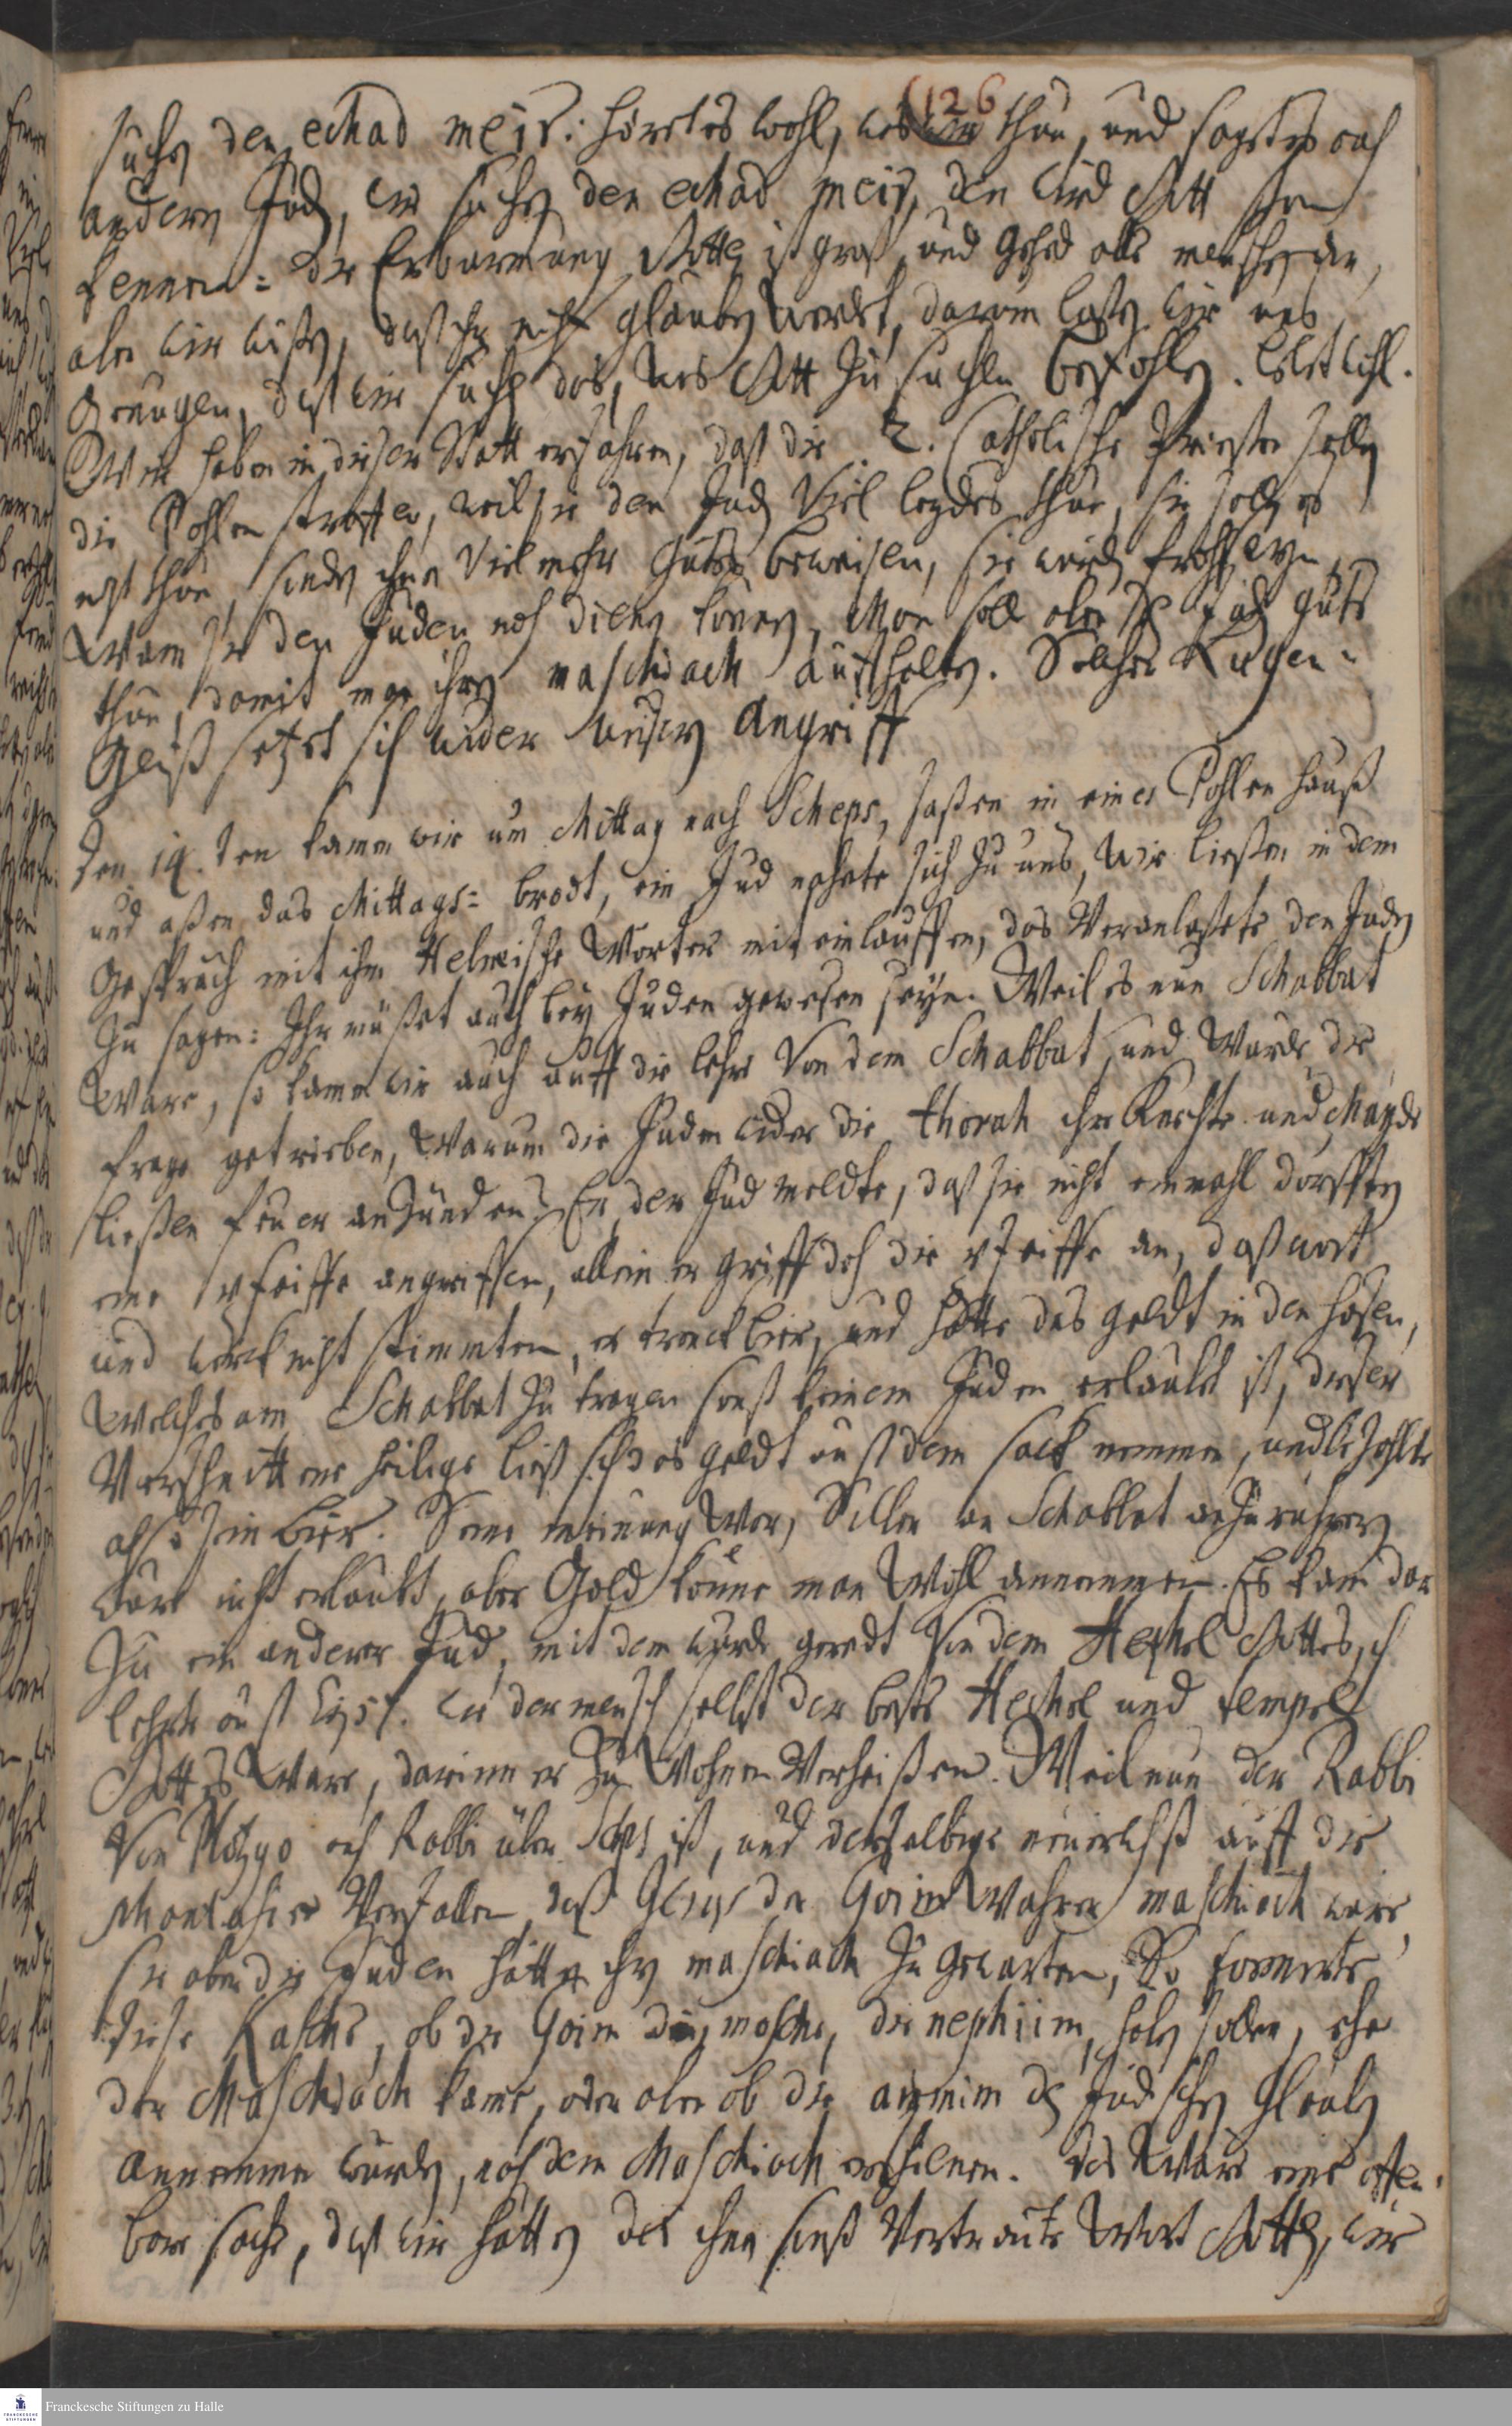 (126
suchen den echad meir: höret es wohl, was wir thun, und saget es auch
andern Juden, wir suchen den echad meir, den wird Gott schon
kennen: Die Erbarmung Gottes ist groß, und gehet alle menschen an,
aber wir wissen, daß ihr nicht glauben werdet, darum lassen wir uns
genügen, daß wir suchen das, was Gott zu suchen befohlen. lebet wohl.
Wir haben in dieser Statt erfahren, daß die 2. Catholische Priester sollen
die Pohlen straffen, weil sie den Juden viel leydes thun, sie sollen es
nicht thun, sondern ihnen vielmehr Gutes beweisen, sie würden froh seyn,
wann sie den Juden noch dienen können, Man soll aber den Juden guts
thun, damit man ihren maschiach auffhalte. Solcher Lugen=
Geist setzet sich wider unsern Angriff
Den 14.ten kamen wir um Mittag nach Scheps, saßen in eines Pohlen hauß
und aßen das Mittags=brodt, ein Jud nahete sich zu uns, wir ließen in dem
Gespräch mit ihm Hebreische Worter mit einlauffen, das Veranlaßete den Juden
zu sagen: Ihr müßet auch bey Juden gewesen seyn. Weil es nun Schabbat
ware, so kamen wir auch auff die lehre Von dem Schabbat, und wurde die
frage getrieben, Warum die Juden wider die thorah ihre Knechte und Mägde
ließen feuer anzünden? Er der Jud meldte, daß sie nicht einmahl dorfften
eine Pfeiffe angreiffen, allein er griff doch die Pfeiffe an, daß wort
und werck nicht stimmten, er tranck bier, und hatte das geldt in den hosen,
welches am Schabbat zu tragen sonst keinem Juden erlaubt ist, dieser
Verschnittene heilige ließ sich das geldt auß dem sack nemmen, und bezahlte
also sein bier. Seine meinung war, Silber am Schabbat anzurühren
ware nicht erlaubt, aber Gold könne man wohl annemmen. Es kam dar
zu ein anderer Jud, mit dem wurde geredt Von dem Hechel Gottes, ich
lehrte auß Es. 57. wie der mensch selbst der beste Hechel und tempel
Gottes ware, darinnen er zu wohnen Verheißen. Weil nun der Rabbi
Von auch Rabbi über Scheps ist, und derselbige neuerlich auff die
Verfallen, daß Jesus der Goim wahrer maschiach ware,
sie aber die Juden hätten ihren maschiach zu gewarten, So formirte
diese Kasche, ob die Goim den mosche, die nephiim, haben sollen, ehe
der Maschiach kame, oder aber ob die ammim den Jüdischen Glauben
annemmen würden, nach dem Maschiach erschienen. Das ware eine offen=
bare sache, daß wir hätten das ihnen sonst Vertraute Wort Gottes, wir
Franckesche Stiftungen zu Halle